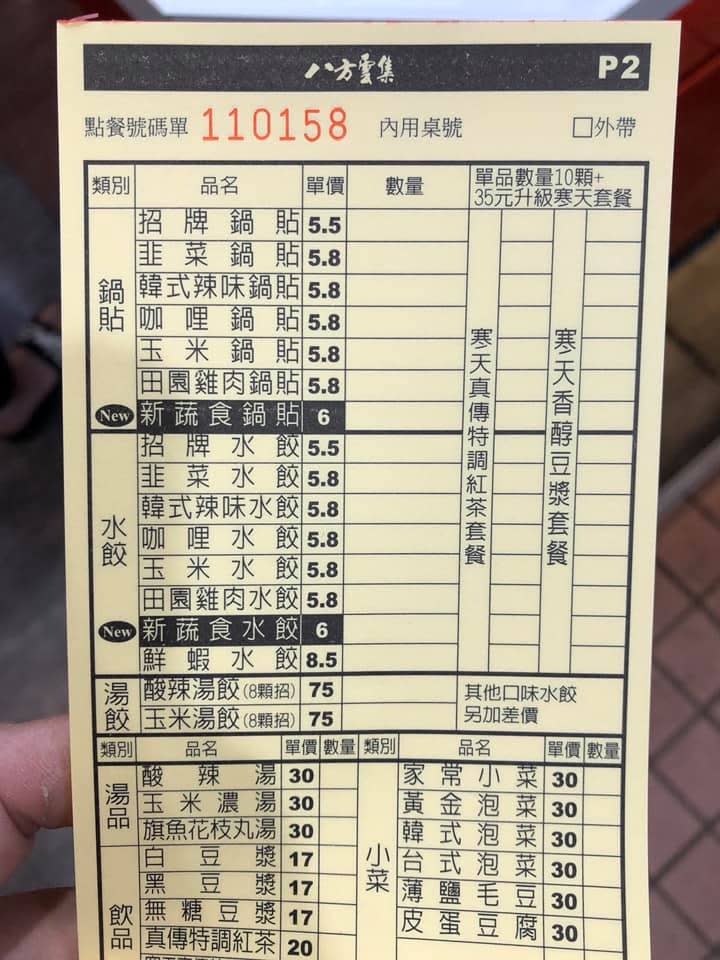 八方雲集 P2
點餐號碼單 110158 內用桌號 □外帶
類別 品名 單價 數量 單品數量10顆+
35元升級寒天套餐
鍋貼
招牌鍋貼 5.5
韭菜鍋貼 5.8
韓式辣味鍋貼 5.8
咖哩鍋貼 5.8
玉米鍋貼 5.8
田園雞肉鍋貼 5.8
New 新蔬食鍋貼 6
寒天真傳特調紅茶套餐
寒天香醇豆漿套餐
水餃
招牌水餃 5.5
韭菜水餃 5.8
韓式辣味水餃 5.8
咖哩水餃 5.8
玉米水餃 5.8
田園雞肉水餃 5.8
New 新蔬食水餃 6
鮮蝦水餃 8.5
湯餃
酸辣湯餃(8顆招) 75
玉米湯餃(8顆招) 75
其他口味水餃
另加差價
類別 品名 單價 數量 類別 品名 單價 數量
湯品
酸辣湯 30
玉米濃湯 30
旗魚花枝丸湯 30
飲品
白豆漿 17
黑豆漿 17
無糖豆漿 17
真傳特調紅茶 20
小菜
家常小菜 30
黃金泡菜 30
韓式泡菜 30
台式泡菜 30
薄鹽毛豆 30
皮蛋豆腐 30